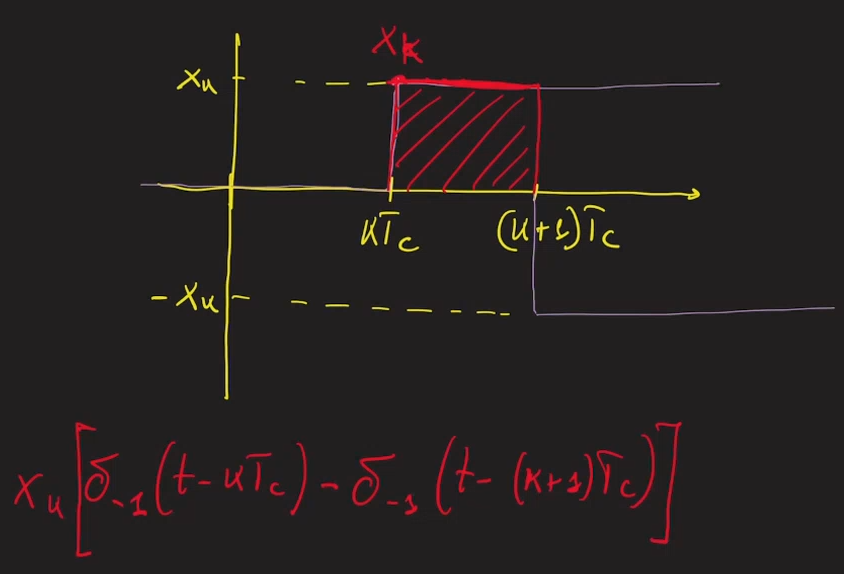 x_k
x_k
kT_c
(k+1)T_c
-x_k
x_k[δ_{-1}(t-kT_c)-δ_{-1}(t-(k+1)T_c)]